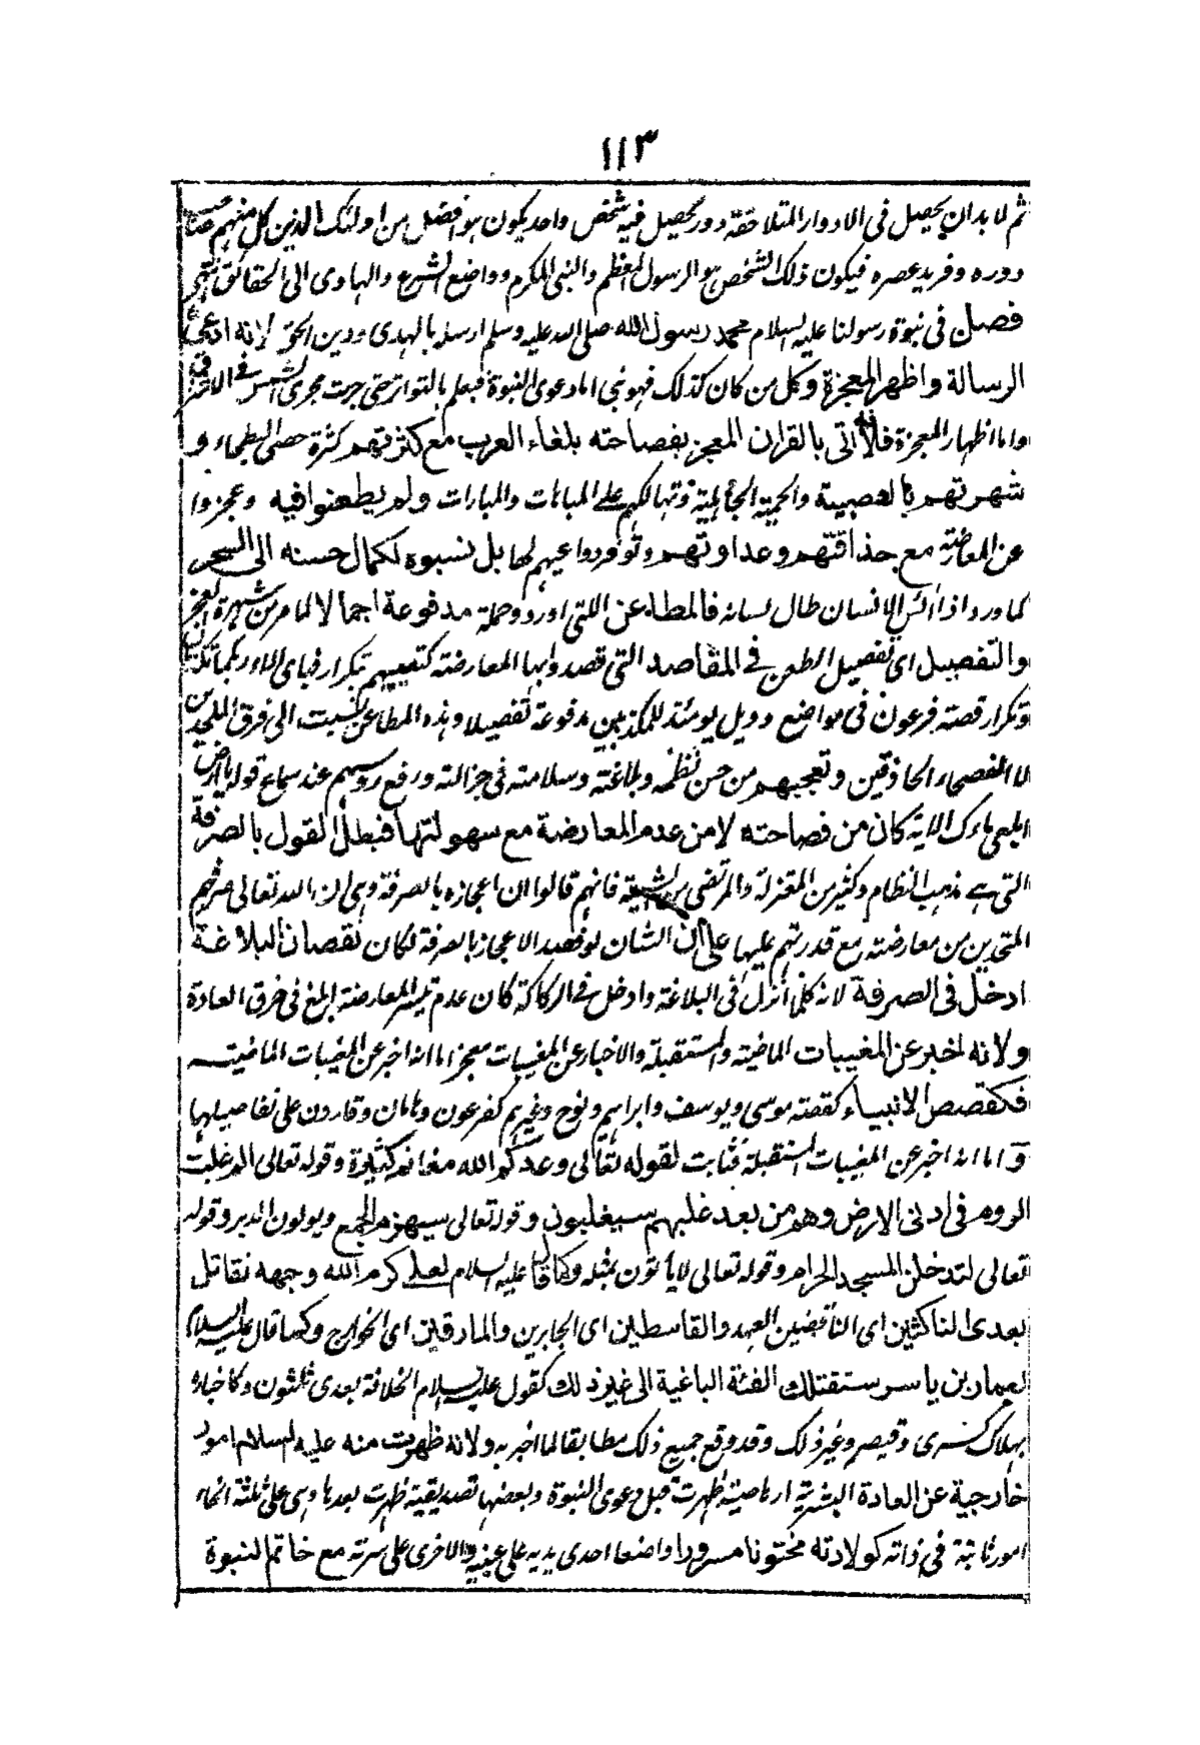 ١١٣
ثم لا بد ان يحصل فى الادوار المتلاحقة دور يحصل فيه شخص واحد يكون هو افضل من اولئك الذين كل منهم صاحب
دوره وفريد عصره فيكون ذلك الشخص هو الرسول المعظم والنبى المكرم وواضع الشرع والهادى الى الحقائق انتهى
فصل فى نبوة رسولنا عليه السلام محمد رسول الله صلى الله عليه وسلم ارسله بالهدى ودين الحق لانه ادعى
الرسالة واظهر المعجزة وكل من كان كذلك فهو نبى اما دعوى النبوة فيعلم بالتواتر حتى جرت مجرى الشمس فى الاشراق
واما اظهار المعجزة فلانه اتى بالقران المعجز بفصاحته بلغاء العرب مع كثرتهم كثرة حصى البطحاء و
شهرتهم بالعصبية والحمية الجاهلية وتهالكهم على المباهات والمبارات ولم يطعنوا فيه وعجزوا
عن المعارضة مع حذاقتهم وعداوتهم وتوفر دواعيهم لها بل نسبوه لكمال حسنه الى السحر
كما ورد اذا ائس الانسان طال لسانه فالمطاعن اللتى اوردوها جملة مدفوعة اجمالا لما مر من شهرة العجز
والتفصيل اى تفصيل الطعن فى المقاصد التى قصدوا بها المعارضة كتعييبهم بتكرار فباى الاء ربكما تكذبان
وتكرار قصة فرعون فى مواضع وويل يومئذ للمكذبين مدفوعة تفصيلا وهذه المطاعن نسبت الى فرق الملحدين
لا الفصحاء الحاذقين وتعجبهم من حسن نظمه وبلاغته وسلامته فى جزالته ورفع رؤسهم عند سماع قوله يا ارض
ابلعى ماءك الاية كان من فصاحته لا من عدم المعارضة مع سهولتها فبطل القول بالصرفة
التى هى مذهب النظام وكثير من المعتزلة والمرتضى من الشيعة فانهم قالوا ان اعجازه بالصرفة وهى ان الله تعالى صرفهم
المتحدين من معارضته مع قدرتهم عليها على ان الشان لو قصد الاعجاز بالصرفة لكان نقصان البلاغة
ادخل فى الصرفة لانه كلما انزل فى البلاغة وادخل فى الركاكة كان عدم تيسر المعارضة ابلغ فى خرق العادة
ولانه اخبر عن المغيبات الماضية والمستقبلة والاخبار عن المغيبات معجز اما انه اخبر عن المغيبات الماضية
فكقصص الانبياء كقصة موسى ويوسف وابراهيم ونوح وغيرهم كفرعون وهامان وقارون على تفاصيلها
و اما انه اخبر عن المغيبات المستقبلة فثابت لقوله تعالى وعدكم الله مغانم كثيرة وقوله تعالى الم غلبت
الروم فى ادنى الارض وهم من بعد غلبهم سيغلبون وقوله تعالى سيهزم الجمع ويولون الدبر وقوله
تعالى لتدخلن المسجد الحرام وقوله تعالى لا يأتون بمثله وكما قال عليه السلام لعلى كرم الله وجهه نقاتل
بعدى الناكثين اى الناقضين العهد والقاسطين اى الجابرين والمارقين اى الخوارج وكما قال عليه السلام
لعمار بن ياسر ستقتلك الفئة الباغية الى غير ذلك كقول عليه السلام الخلافة بعدى ثلثون وكاخباره
بهلاك كسرى وقيصر وغير ذلك وقد وقع جميع ذلك مطابقا لما اخبر به ولانه ظهرت منه عليه السلام امور
خارجية عن العادة البشرية ارهاصية ظهرت قبل دعوى النبوة وبعضها تصديقية ظهرت بعدها وهى على ثلثة انحاء
امور ثابتة فى ذاته كولادته مختونا مسرورا واضعا احدى يديه على عينيه والاخرى على سرته مع خاتم النبوة